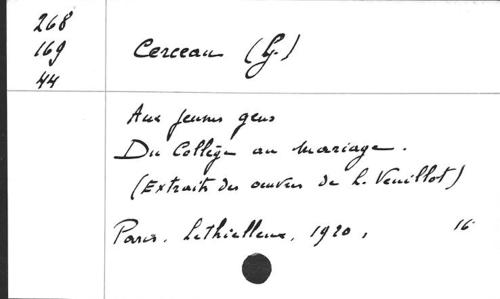 268
169
44
Cerceau (G.)
Aux jeunes gens
Du Collège au mariage.
(Extraits des œuvres de L. Veuillot)
Paris. Lethielleux, 1920, 16°